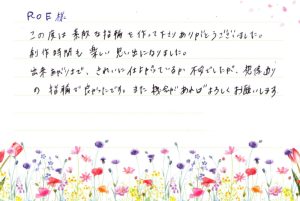 ROE 様
この度は素敵な指輪を作って下さりありがとうございました。
創作時間も楽しい思い出になりました。
出来上がりまで、きれいに仕上がっているか不安でしたが、想像通り
の指輪で良かったです。また機会があればよろしくお願いします